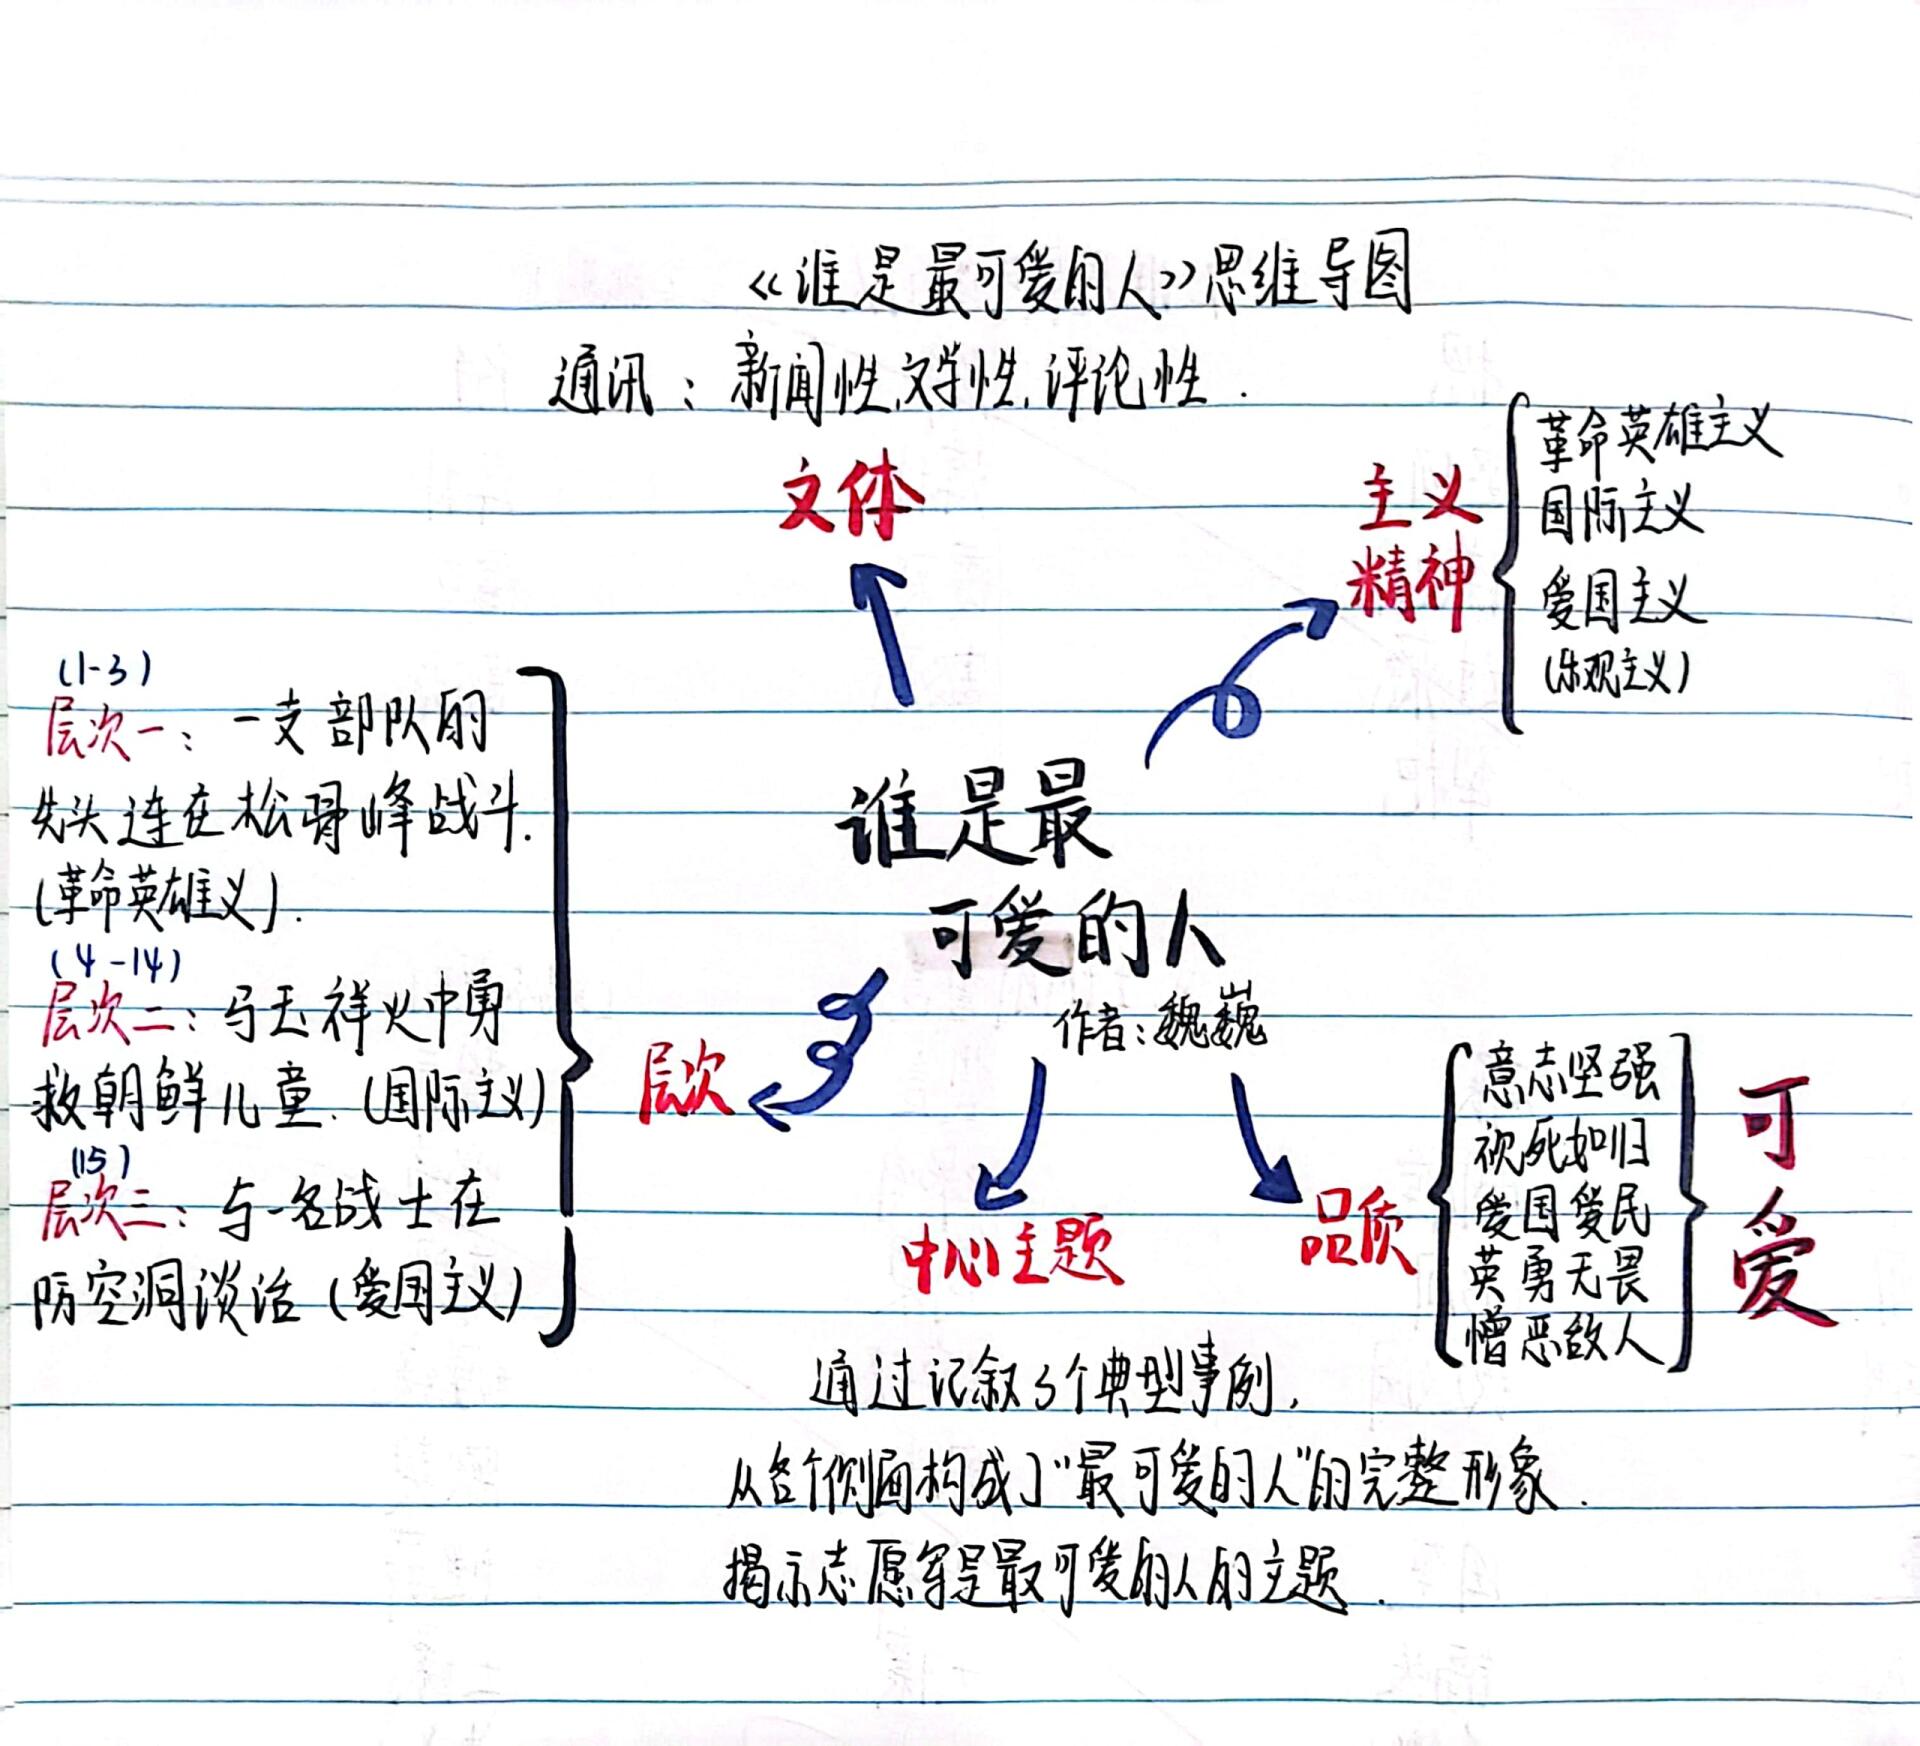 《谁是最可爱的人》思维导图
通讯：新闻性,文学性,评论性.
文体
主义
精神
革命英雄主义
国际主义
爱国主义
(乐观主义)
(1-3)
层次一：一支部队的
先头连在松骨峰战斗.
(革命英雄主义).
(4-14)
层次二：马玉祥火中勇
救朝鲜儿童.(国际主义)
(15)
层次三：与一名战士在
防空洞谈话(爱国主义)
层次
谁是最
可爱的人
作者：魏巍
中心主题
通过记叙3个典型事例,
从各个侧面构成了"最可爱的人"的完整形象.
揭示志愿军是最可爱的人的主题.
品质
意志坚强
视死如归
爱国爱民
英勇无畏
憎恶敌人
可
爱